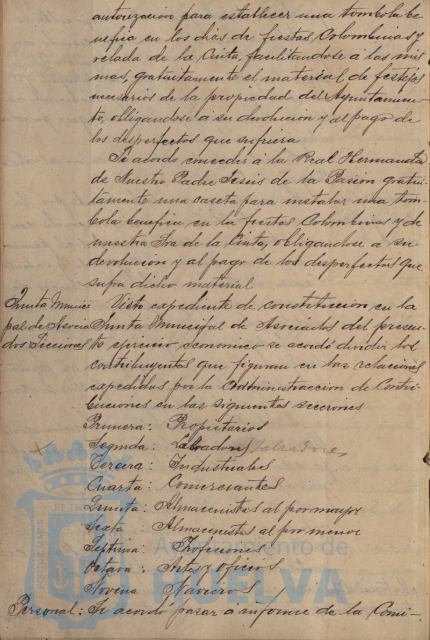 autorización para establecer una tombola be-
nefica en los dias de fiestas Colombinas y
velada de la Cinta, facilitandose a las mis
mas, gratuitamente el material de festejos
necesarios de la propiedad del Ayuntamien-
to, obligandose a su devolución y al pago de
los desperfectos que sufriera
Se acordo conceder a la Real Hermandad
de Nuestro Padre Jesús de la Pasión gratui-
tamente una caseta para instalar una tom-
bola benefica en la fiestas Colombinas y de
nuestra Sra de la Cinta, obligandose a su
devolución y al pago de los desperfectos que
sufra dicho material
Junta Munici Visto expediente de constitucion, en la
pal de Asocia Junta Municipal de Asociados del presen-
dos Secciones te ejercicio economico se acordó dividir los
contribuyentes que figuran en las relaciones
expedidas por la Administraccion de Contri-
buciones en las siguientes secciones
Primera: Propietarios
Segunda: Labradores
Tercera: Industriales
Cuarta: Comerciantes
Quinta: Almacenistas al por mayor
Sexta: Almacenistas al por menor
Septima: Profesiones
Octava: Artes y oficios
Novena Navieros
Personal: Se acordo pasar a informe de la Comi-
Ayuntamiento de
HUELVA